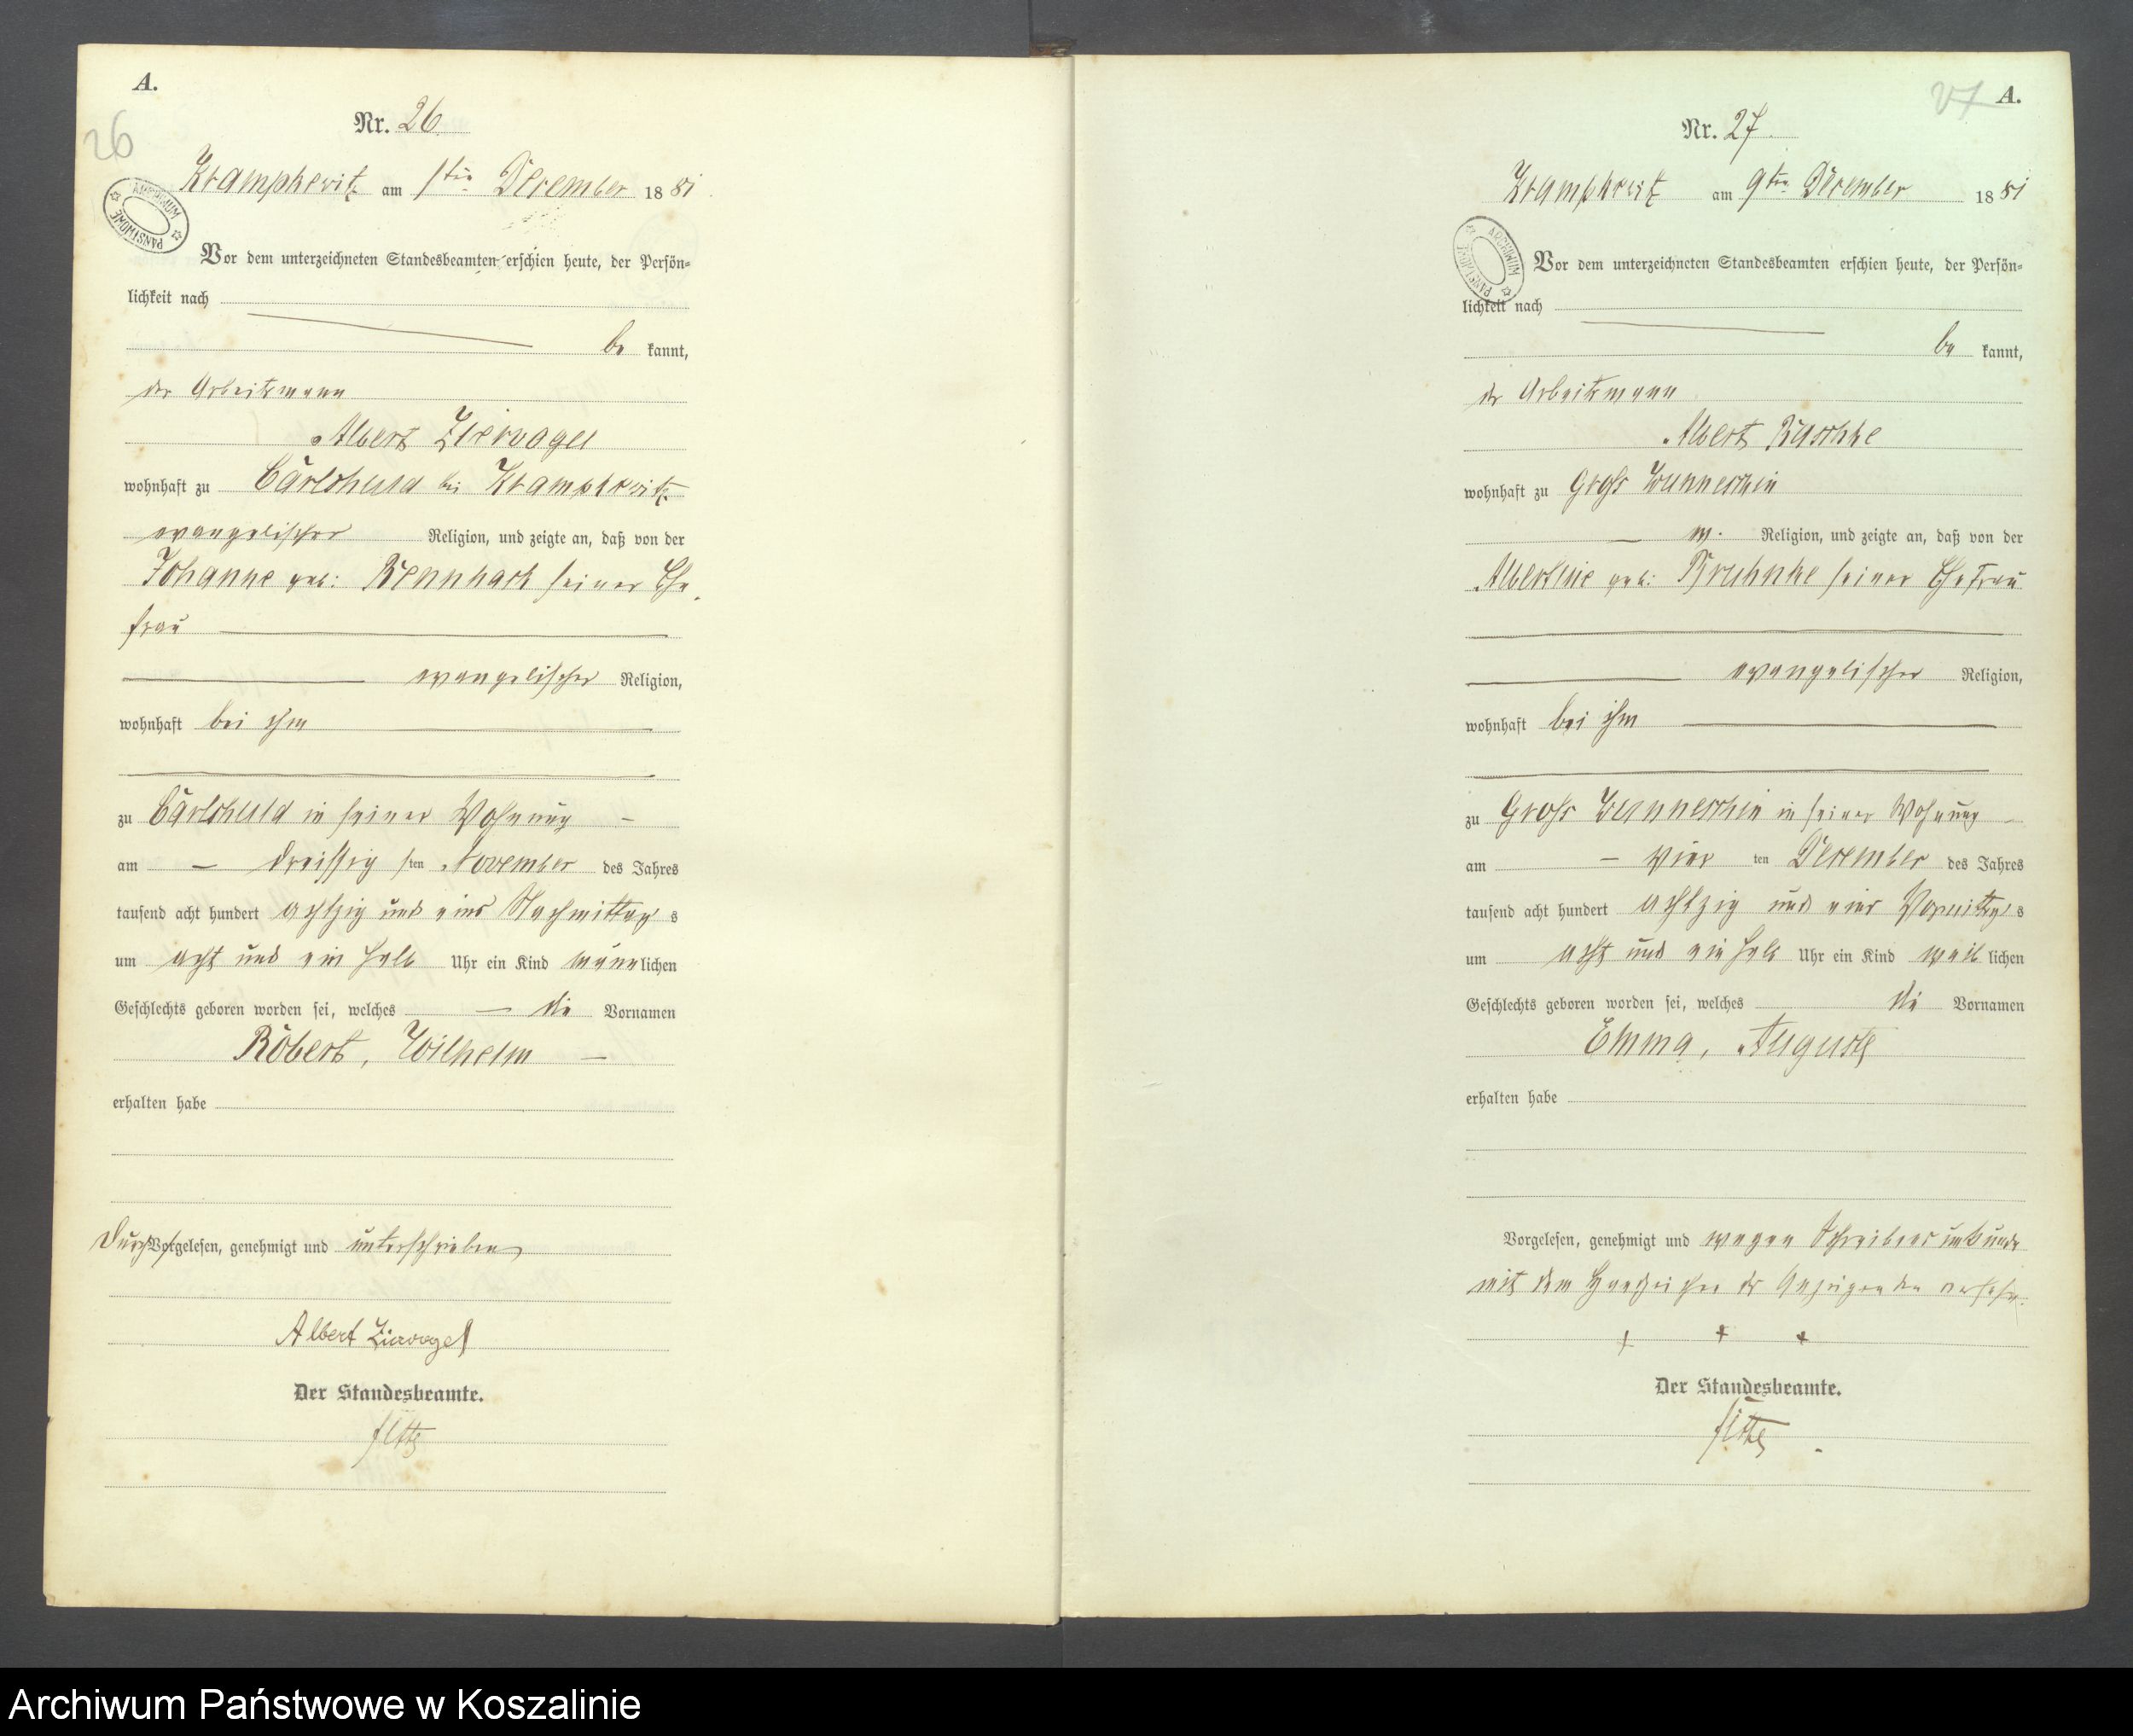 A.
26
Nr. 26
Krampkewitz am 1ten December 1881
ARCHIWUM PAŃSTWOWE
Vor dem unterzeichneten Standesbeamten erschien heute, der Persön-
lichkeit nach
be kannt,
der Arbeitsmann
Albert Ziervogel
wohnhaft zu Carlshuld bei Krampkewitz
evangelischer Religion, und zeigte an, daß von der
Johanne geb: Rennhack seiner Ehe
frau
evangelischer Religion,
wohnhaft bei ihm
zu Carlshuld in seiner Wohnung
am dreissig sten November des Jahres
tausend acht hundert achtzig und eins Nachmittag s
um acht und ein halb Uhr ein Kind männlichen
Geschlechts geboren worden sei, welches die Vornamen
Robert, Wilhelm
erhalten habe
Vorgelesen, genehmigt und unterschrieben
Albert Ziervogel
Der Standesbeamte.
A.
27
Nr. 27.
Krampkewitz am 9ten December 1881
ARCHIWUM PAŃSTWOWE
Vor dem unterzeichneten Standesbeamten erschien heute, der Persön-
lichkeit nach
be kannt,
der Arbeitsmann
Albert Ruschke
wohnhaft zu Gross Wunneschin
ev. Religion, und zeigte an, daß von der
Albertine geb: Bruhnke seiner Ehefrau
evangelischer Religion,
wohnhaft bei ihm
zu Gross Wunneschin in seiner Wohnung
am vier ten December des Jahres
tausend acht hundert achtzig und eins Vormittag s
um acht und ein halb Uhr ein Kind weib lichen
Geschlechts geboren worden sei, welches die Vornamen
Emma, Auguste
erhalten habe
Vorgelesen, genehmigt und wegen Schreibensunkunde
mit dem Handzeichen des Anzeigenden versehen.
+ + +
Der Standesbeamte.
Archiwum Państwowe w Koszalinie